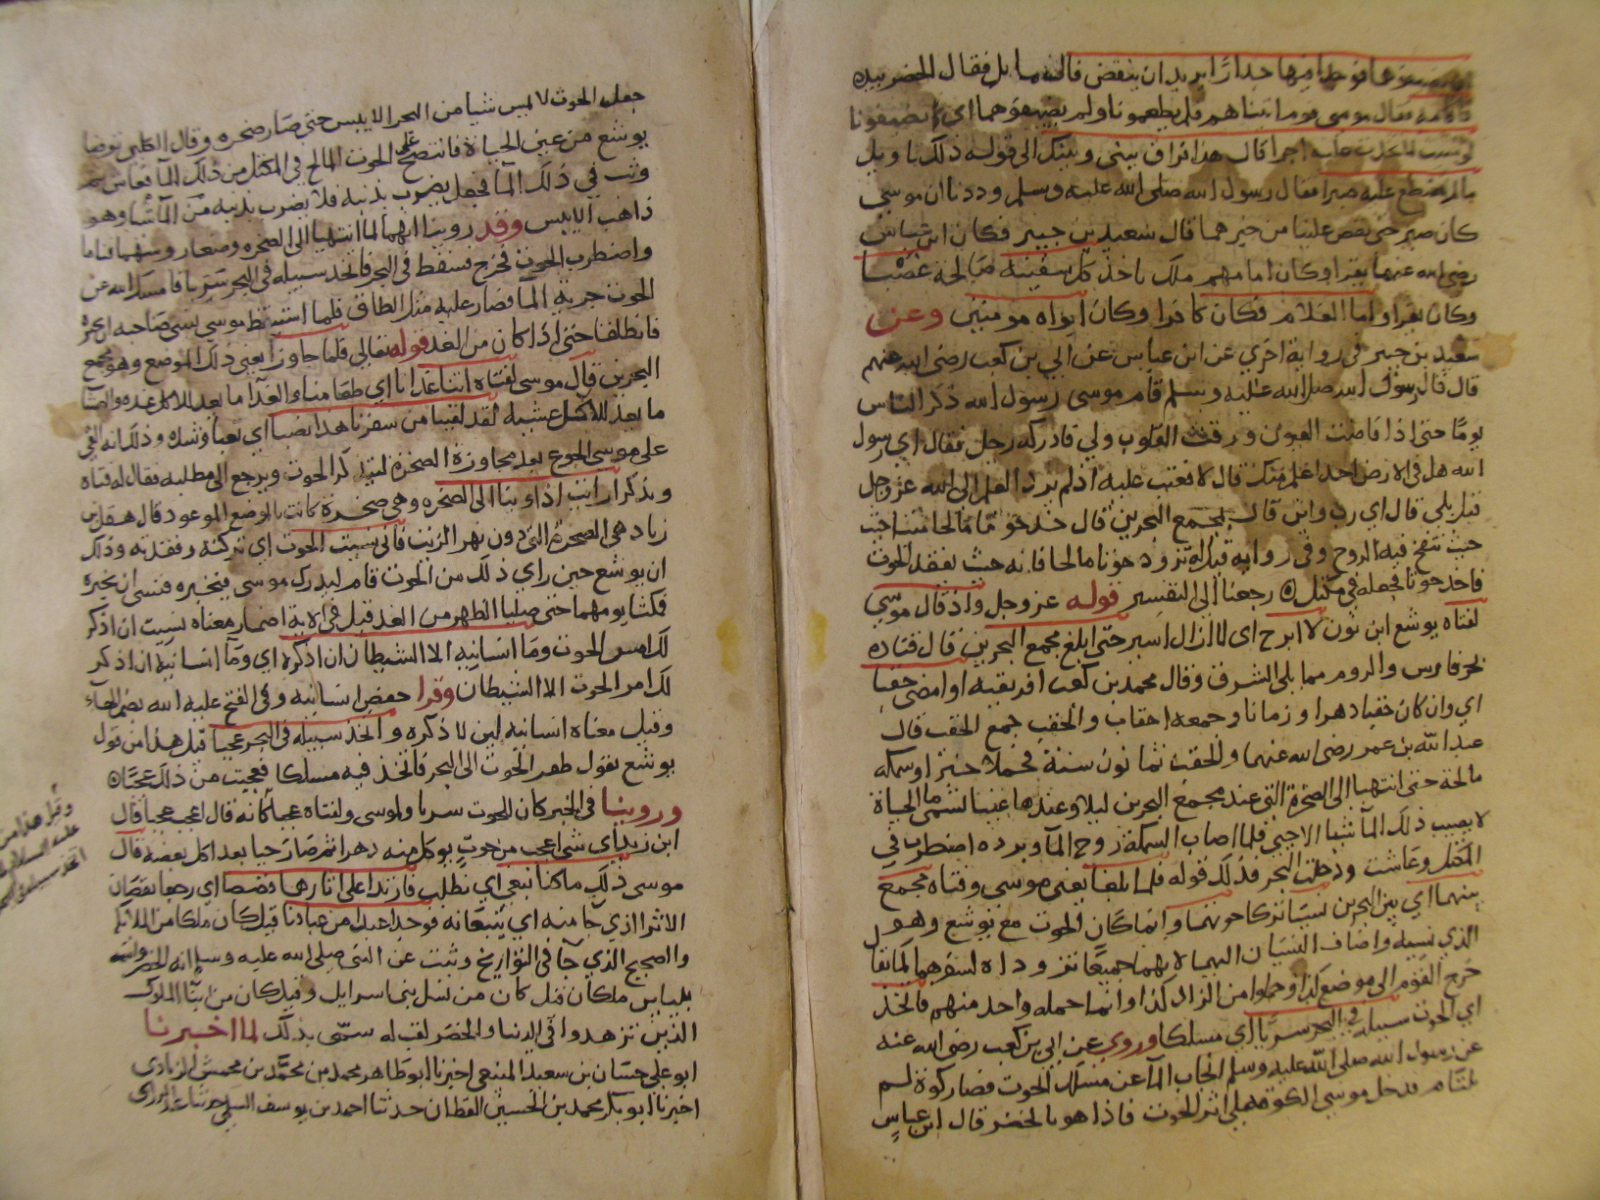 يضيفوهما فوجدا فيها جدارا يريد ان ينقض قال مايل فقال الخضر بيده
فاقامه فقال موسى قوم اتيناهم فلم يطعمونا ولم يضيفونا
لو شئت لاتخذت عليه اجرا قال هذا فراق بيني وبينك الى قوله ذلك تاويل
ما لم تسطع عليه صبرا فقال رسول الله صلى الله عليه وسلم وددنا ان موسى
كان صبر حتى يقص علينا من خبرهما قال سعيد بن جبير فكان ابن عباس
رضي الله عنهما يقرا وكان امامهم ملك ياخذ كل سفينة صالحة غصبا
وكان يقرا واما الغلام فكان كافرا وكان ابواه مومنين وعن
سعيد بن جبير في رواية اخرى عن ابن عباس عن ابي بن كعب رضي الله عنهم
قال قال رسول الله صلى الله عليه وسلم قام موسى رسول الله ذكر الناس
يوما حتى اذا فاضت العيون ورقت القلوب ولي فادركه رجل فقال اي رسول
الله هل في الارض احد اعلم منك قال لا فعتب عليه اذ لم يرد العلم الى الله عز وجل
قيل بلى قال اي رب واين قال بمجمع البحرين قال خذ حوتا
حيث ننفخ فيه الروح وفي رواية قيل له تزود حوتا مالحا فانه حيث تفقد الحوت
فاخذ حوتا فجعله في مكتل رجعنا الى التفسير قوله عز وجل واذ قال موسى
لفتاه يوشع ابن نون لا ابرح اي لا ازال اسير حتى ابلغ مجمع البحرين قال قتاده
بحر فارس والروم مما يلي الشرق وقال محمد بن كعب افريقيه او امضي حقبا
اي وان كان حقبا دهرا وزمانا وجمعه احقاب والحقب جمع الحقب قال
عبد الله بن عمر رضي الله عنهما والحقب ثمانون سنة فحملا خبزا وسمكه
مالحة حتى انتهيا الى الصخرة التي عند مجمع البحرين ليلا وعندها عين تسمى ما الحياة
لا يصيب ذلك الما شيا الا حيي فلما اصاب السمكة روح الما وبرده اضطربت في
المكتل وعاشت ودخلت البحر فذلك قوله فلما بلغا يعني موسى وفتاه مجمع
بينهما اي بين البحرين نسيا تركا حوتهما وانما كان الحوت مع يوشع وهو
الذي نسيه واضاف النسيان اليهما لانهما جميعا تزوداه لسفرهما كما يقال
خرج القوم الى موضع كذا وحملوا من الزاد كذا وانما حمله واحد منهم فاتخذ
اي الحوت سبيله في البحر سربا اي مسلكا وروي عن ابي بن كعب رضي الله عنه
عن رسول الله صلى الله عليه وسلم انجاب الما عن مسلك الحوت فصار كوة لم
يلتام فدخل موسى الكوة على اثر الحوت فاذا هو بالخضر قال ابن عباس
جعل الحوت لا يمس شيا من البحر الا يبس حتى صار صخره وقال الكلبي توضا
يوشع من عين الحياة فانتضح على الحوت المالح في المكتل من ذلك الما فعاش ثم
وثب في ذلك الما فجعل يضرب بذنبه فلا يضرب بذنبه من الما شيا وهو
ذاهب الا يبس وقد روينا انهما لما انتهيا الى الصخره وضعا روسهما فناما
واضطرب الحوت فخرج فسقط في البحر فاتخذ سبيله في البحر سربا فامسك الله عن
الحوت جرية الما فصار عليه مثل الطاق فلما استيقظ موسى نسي صاحبه ان يخبره
فانطلقا حتى اذا كان من الغد قوله تعالى فلما جاوزا يعني ذلك الموضع وهو مجمع
البحرين قال موسى لفتاه اتنا غدانا اي طعامنا والغدا ما يعد للاكل غدوه والعشا
ما يعد للاكل عشيه لقد لقينا من سفرنا هذا نصبا اي تعبا وشده وذلك انه القي
على موسى الجوع بعد مجاوزة الصخرة ليتذكر الحوت ويرجع الى مطلبه فقال له فتاه
وتذكر ارايت اذ اوينا الى الصخره وهي صخرة كانت بالموضع الموعود قال هقل بن
زياد هي الصخرة التي دون نهر الزيت فاني نسيت الحوت اي تركته وفقدته وذلك
ان يوشع حين راى ذلك من الحوت قام ليدرك موسى فيخبره فنسي ان يخبره
فمكثا يومهما حتى صليا الظهر من الغد قيل في الاية اضمار معناه نسيت ان اذكر
لك امر الحوت وما انسانيه الا الشيطان ان اذكره اي وما انسانيه ان اذكر
لك امر الحوت الا الشيطان وقرا حفص انسانيه وفي الفتح عليه الله بضم الهآء
وقيل معناه انسانيه لين لا اذكره واتخذ سبيله في البحر عجبا قيل هذا من قول
يوشع يقول طفر الحوت الى البحر فاتخذ فيه مسلكا فعجبت من ذلك عجبا
وروينا في الخبر كان للحوت سربا ولموسى ولفتاه عجبا كانه قال اعجب عجبا قال
ابن زيد اي شي اعجب من حوت يوكل منه دهرا ثم صار حيا بعد اكل بعضه قال
موسى ذلك ما كنا نبغي اي نطلب فارتدا على اثارهما قصصا اي رجعا يقصان
الاثر الذي جا منه اي يتبعانه فوجدا عبدا من عبادنا قيل كان ملكا من الملائكة
والصحيح الذي جآ في التواريخ وثبت عن النبي صلى الله عليه وسلم انه الخضر واسمه
بليا بن ملكان قيل كان من نسل بني اسرايل وقيل كان من ابنآ الملوك
الذين تزهدوا في الدنيا والخضر لقب له سمى بذلك لما اخبرنا
ابو علي حسان بن سعيد المنيعي اخبرنا ابو طاهر محمد بن محمد بن محمش الزيادي
اخبرنا ابو بكر محمد بن الحسين القطان حدثنا احمد بن يوسف السلمي حدثنا عبد الرزاق
وقيل هذا من
عليه السلام
اتخذ سبيله في البحر